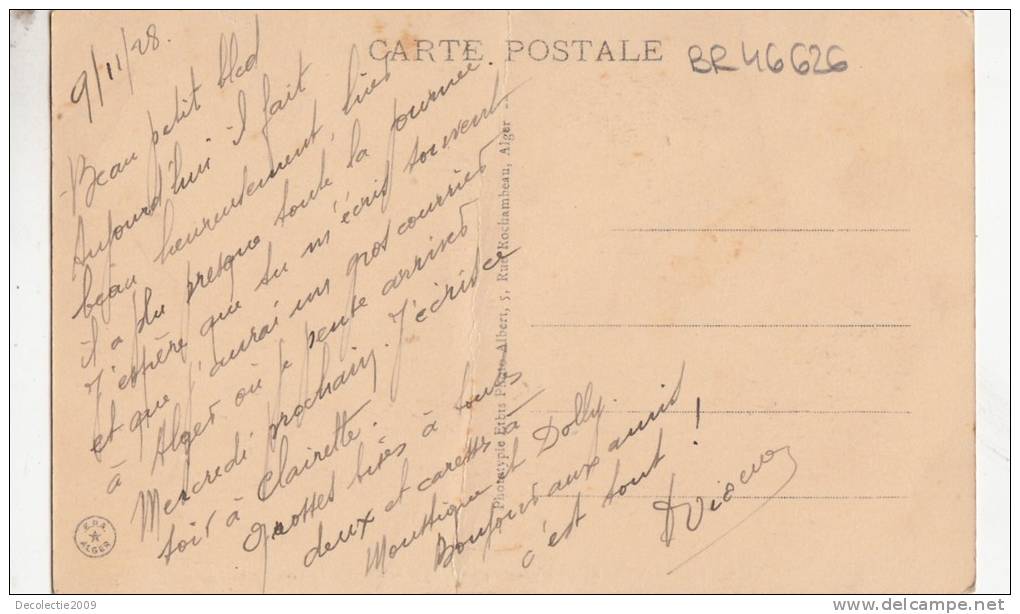 CARTE POSTALE
BR46626
9/11/28.
Beau petit bled
Aujourd'hui il fait
beau heureusement, hier
il a plu presque toute la journée.
J'espère que tu m'écris souvent
et que j'aurai un gros courrier
à Alger où je pense arriver
Mercredi prochain. J'écris ce
soir à Clairette.
Grosses bises à tous
deux et caresses à
Moustique et Dolly.
Bonjour aux amis
c'est tout !
Phototypie Etbis Photo Albert, 5, Rue Rochambeau, Alger
E.P.A.
ALGER
Decolectie2009
www.delcampe.net